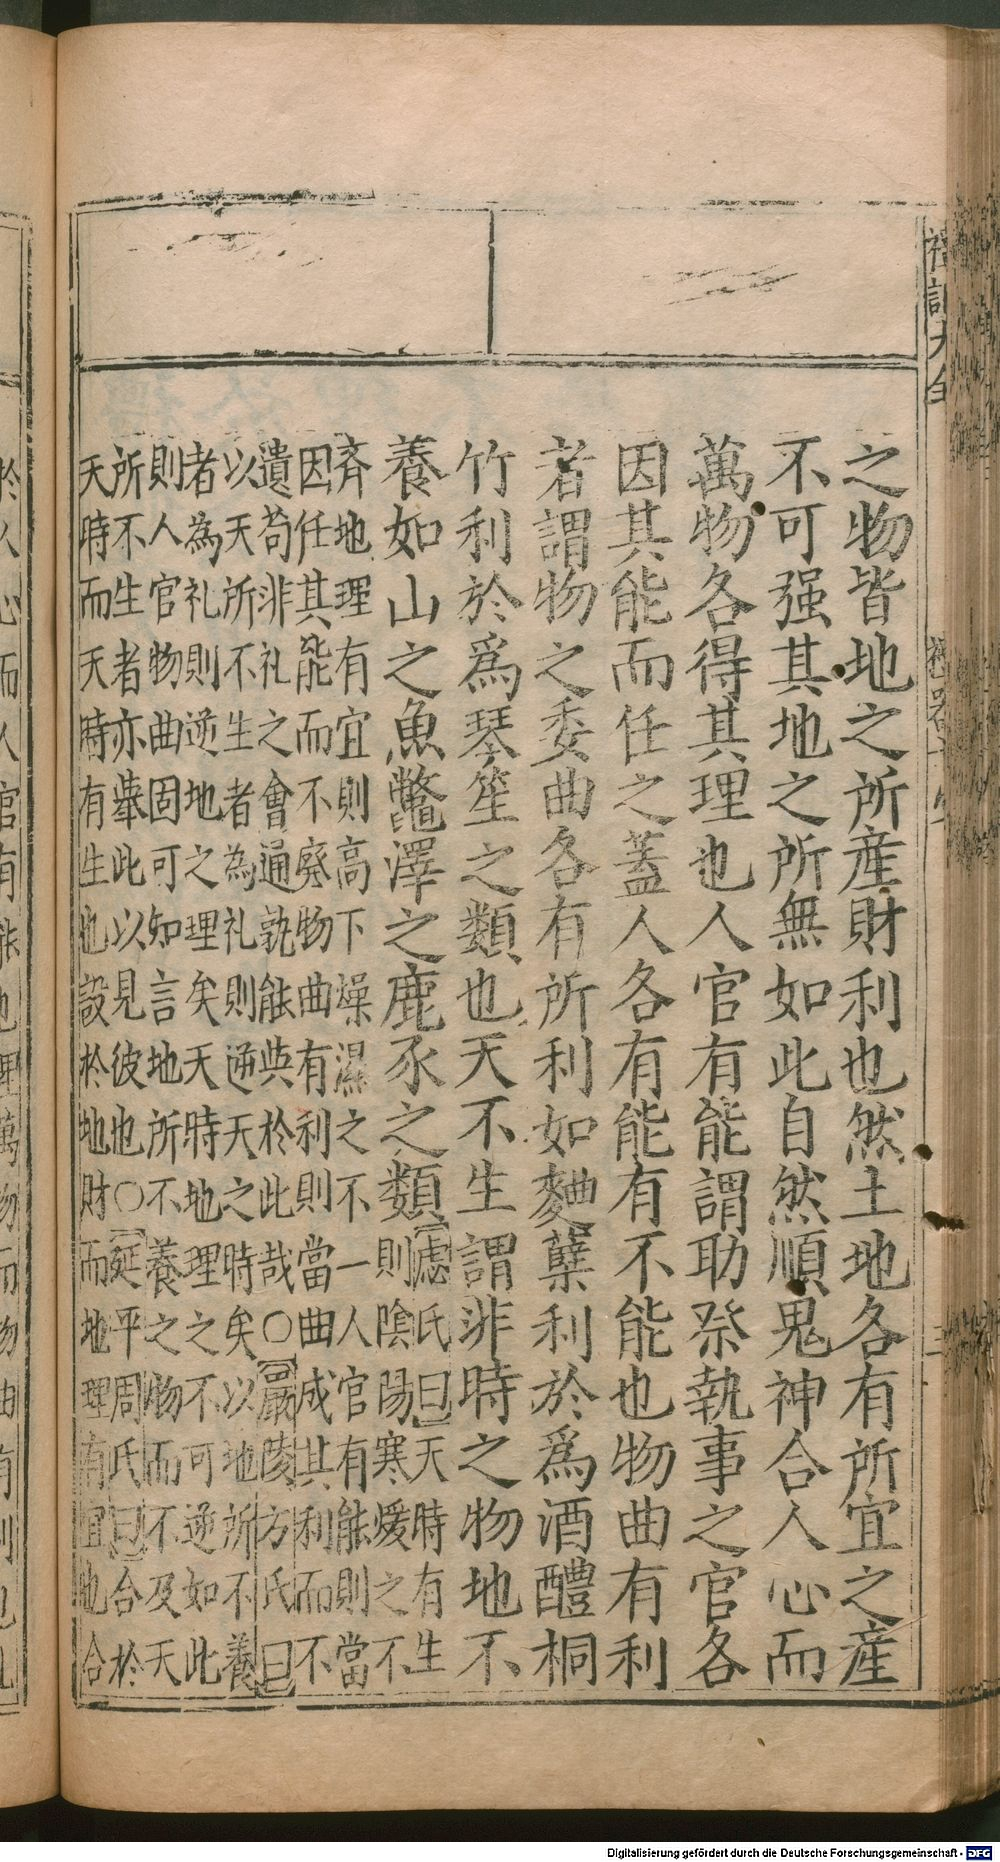 之物皆地之所產財利也然土地各有所宜之產
不可强其地之所無如此自然順鬼神合人心而
萬物各得其理也人官有能謂助祭執事之官各
因其能而任之蓋人各有能有不能也物曲有利
者謂物之委曲各有所利如麴糵利於爲酒醴桐
竹利於爲琴笙之類也天不生謂非時之物地不
養如山之魚鼈澤之鹿豕之類
慮氏曰天時有生
則隂陽寒煖之不
齊地理有宜則高下燥濕之不一人官有能則當
因任其能而不廢物曲有利則當曲成其利而不
遺苟非礼之會通孰能與於此哉〇嚴陵方氏曰
以天所不生者為礼則逆天之時矣以地所不養
者為礼則逆地之理矣天時地理之不可逆如此
則人官物曲固可知言地所不養之物而不及天
所不生者亦舉此以見彼也〇延平周氏曰合於
天時而天時有生也設於地財而地理有宜也合
禮記大全
禮器十
三
Digitalisierung gefördert durch die Deutsche Forschungsgemeinschaft - DFG